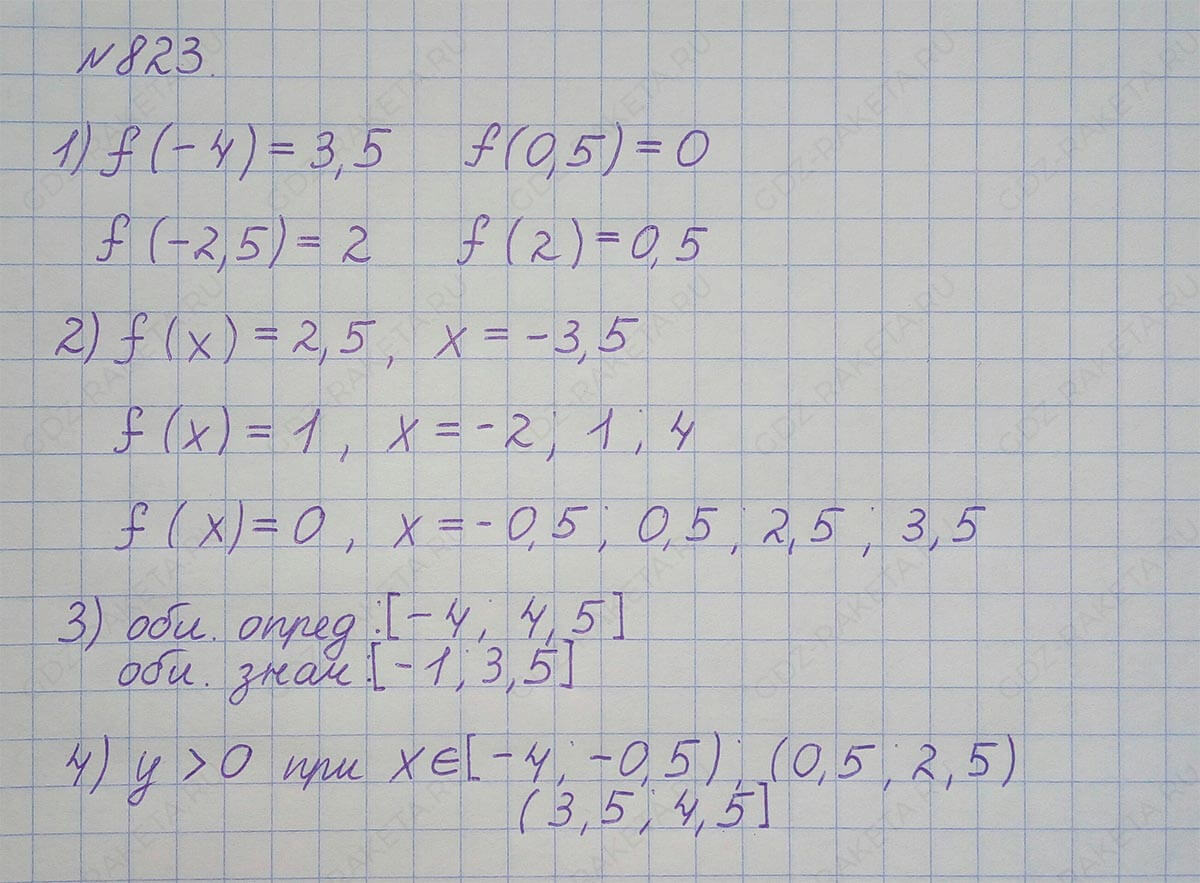 №823.
1) f(-4)=3,5 f(0,5)=0
f(-2,5)=2 f(2)=0,5
2) f(x)=2,5, x=-3,5
f(x)=1, x=-2; 1; 4
f(x)=0, x=-0,5; 0,5; 2,5; 3,5
3) обл. опред:[-4; 4,5]
обл. знач:[-1; 3,5]
4) y>0 при x∈[-4; -0,5); (0,5; 2,5)
(3,5; 4,5]
GDZ-RAKETA.RU